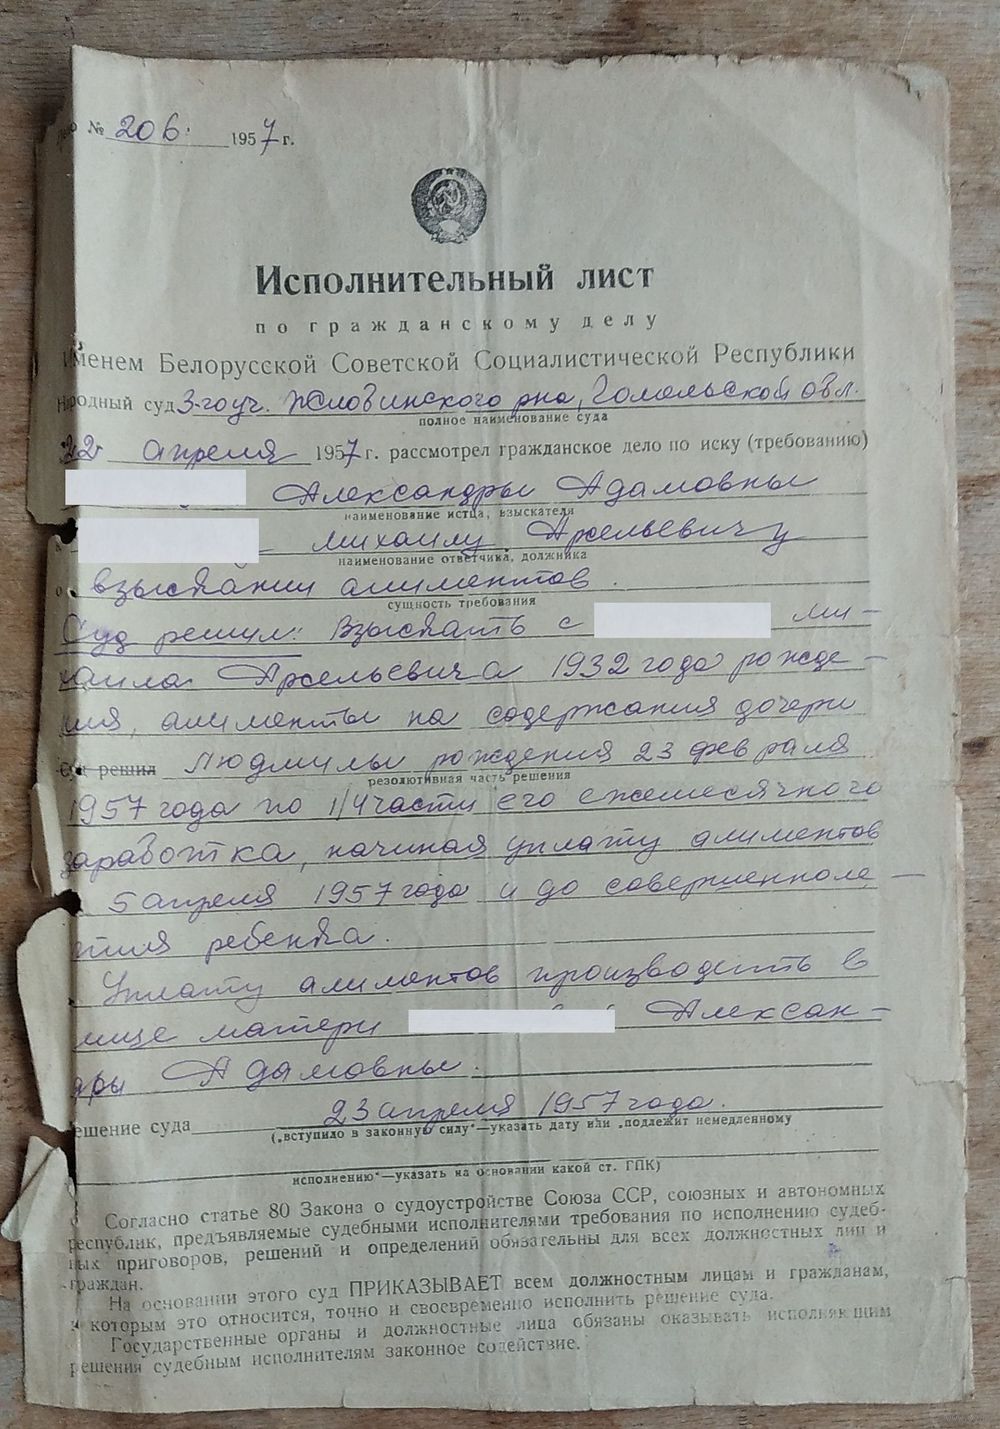 Дело № 206. 1957 г.
Исполнительный лист
по гражданскому делу
Именем Белорусской Советской Социалистической Республики
Народный суд 3-го уч. Жловинского рна, Гомельской обл.
полное наименование суда
22 апреля 1957 г. рассмотрел гражданское дело по иску (требованию)
Александры Адамовны
наименование истца, взыскателя
к Михаилу Арсельевичу
наименование ответчика, должника
о взыскании алиментов.
сущность требования
Суд решил: Взыскать с ми-
хаила Арсельевича 1932 года рожде-
ния, алименты на содержания дочери
Суд решил Людмилы рождения 23 февраля
резолютивная часть решения
1957 года по 1/4 части его ежемесячного
заработка, начиная уплату алиментов
5 апреля 1957 года и до совершенноле-
тия ребенка.
Уплату алиментов производить в
лице матери Алексан-
дры Адамовны.
Решение суда 23 апреля 1957 года.
(„вступило в законную силу“—указать дату или „подлежит немедленному
исполнению“—указать на основании какой ст. ГПК)
Согласно статье 80 Закона о судоустройстве Союза ССР, союзных и автономных
республик, предъявляемые судебными исполнителями требования по исполнению судеб-
ных приговоров, решений и определений обязательны для всех должностных лиц и
граждан.
На основании этого суд ПРИКАЗЫВАЕТ всем должностным лицам и гражданам,
к которым это относится, точно и своевременно исполнить решение суда.
Государственные органы и должностные лица обязаны оказывать исполняющим
решения судебным исполнителям законное содействие.